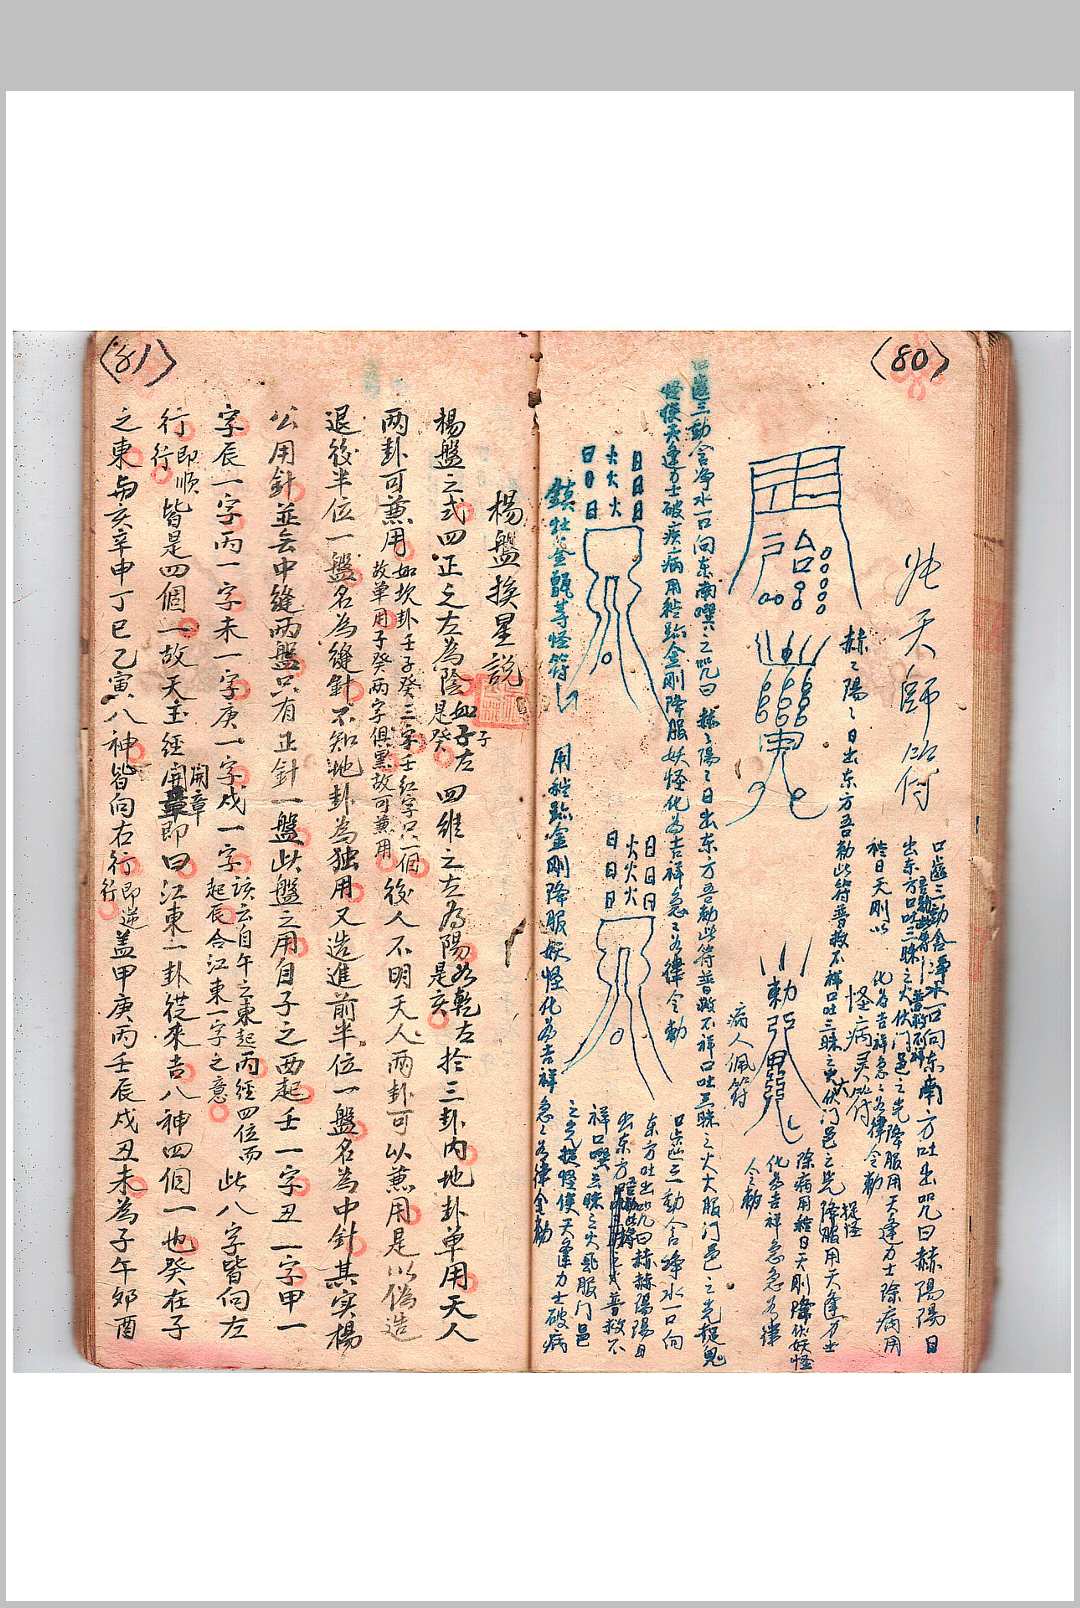 (80)
天師
口齒三動含淨水一口向东南方吐出咒曰赫陽陽日
出东方口吐三昧之火伏门邑之光降服用天逢力士除病用
秽日天刚以
化为吉祥急急为律令勅
怪病灵符
赫赫陽陽日出东方吾勅此符普救不祥口吐三昧之
伏门邑之光降服用天逢力士
捉怪
除病用秽日天刚降伏妖怪
化为吉祥急急为律
令勅
勅
病人佩符
口齒三動含净水一口向东南噀之咒曰赫赫陽陽日出东方吾勅此符普救不祥口吐三昧之火大服门邑之光捉鬼
怪使天逢力士破疾病用秽跡金刚降服妖怪化为吉祥急急为律令勅
日日日
火火火
日日日
鎮灶釜甑等怪符
日日日
火火火
日日日
口齿三動含净水一口向
东方吐出咒曰赫赫陽陽日
出东方吾勅此符普救不
祥口噀三昧之火服门邑
之光捉怪使天逢力士破病
用秽跡金刚降服妖怪化为吉祥急急为律令勅
(81)
楊盤換星說
楊盤之式四正之左為陰如子左是癸四維之左為陽如乾左是亥於三卦内地卦单用天人
两卦可兼用如坎卦壬子癸三字壬红字只一個故单用子癸两字俱黑故可兼用後人不明天人两卦可以兼用是以偽造
退後半位一盤名為縫針不知地卦為独用又造進前半位一盤名為中針其实楊
公用針並去中縫两盤只有正針一盤此盤之用自子之西起壬一字丑一字甲一
字辰一字丙一字未一字庚一字戌一字該云自午之東起丙經四位而起辰合江東一字之意此八字皆向左
行即順行皆是四個一故天玉經開章即曰江東一卦從來吉八神四個一也癸在子
之東与亥辛申丁巳乙寅八神皆向右行即逆行盖甲庚丙壬辰戌丑未為子午卯酉